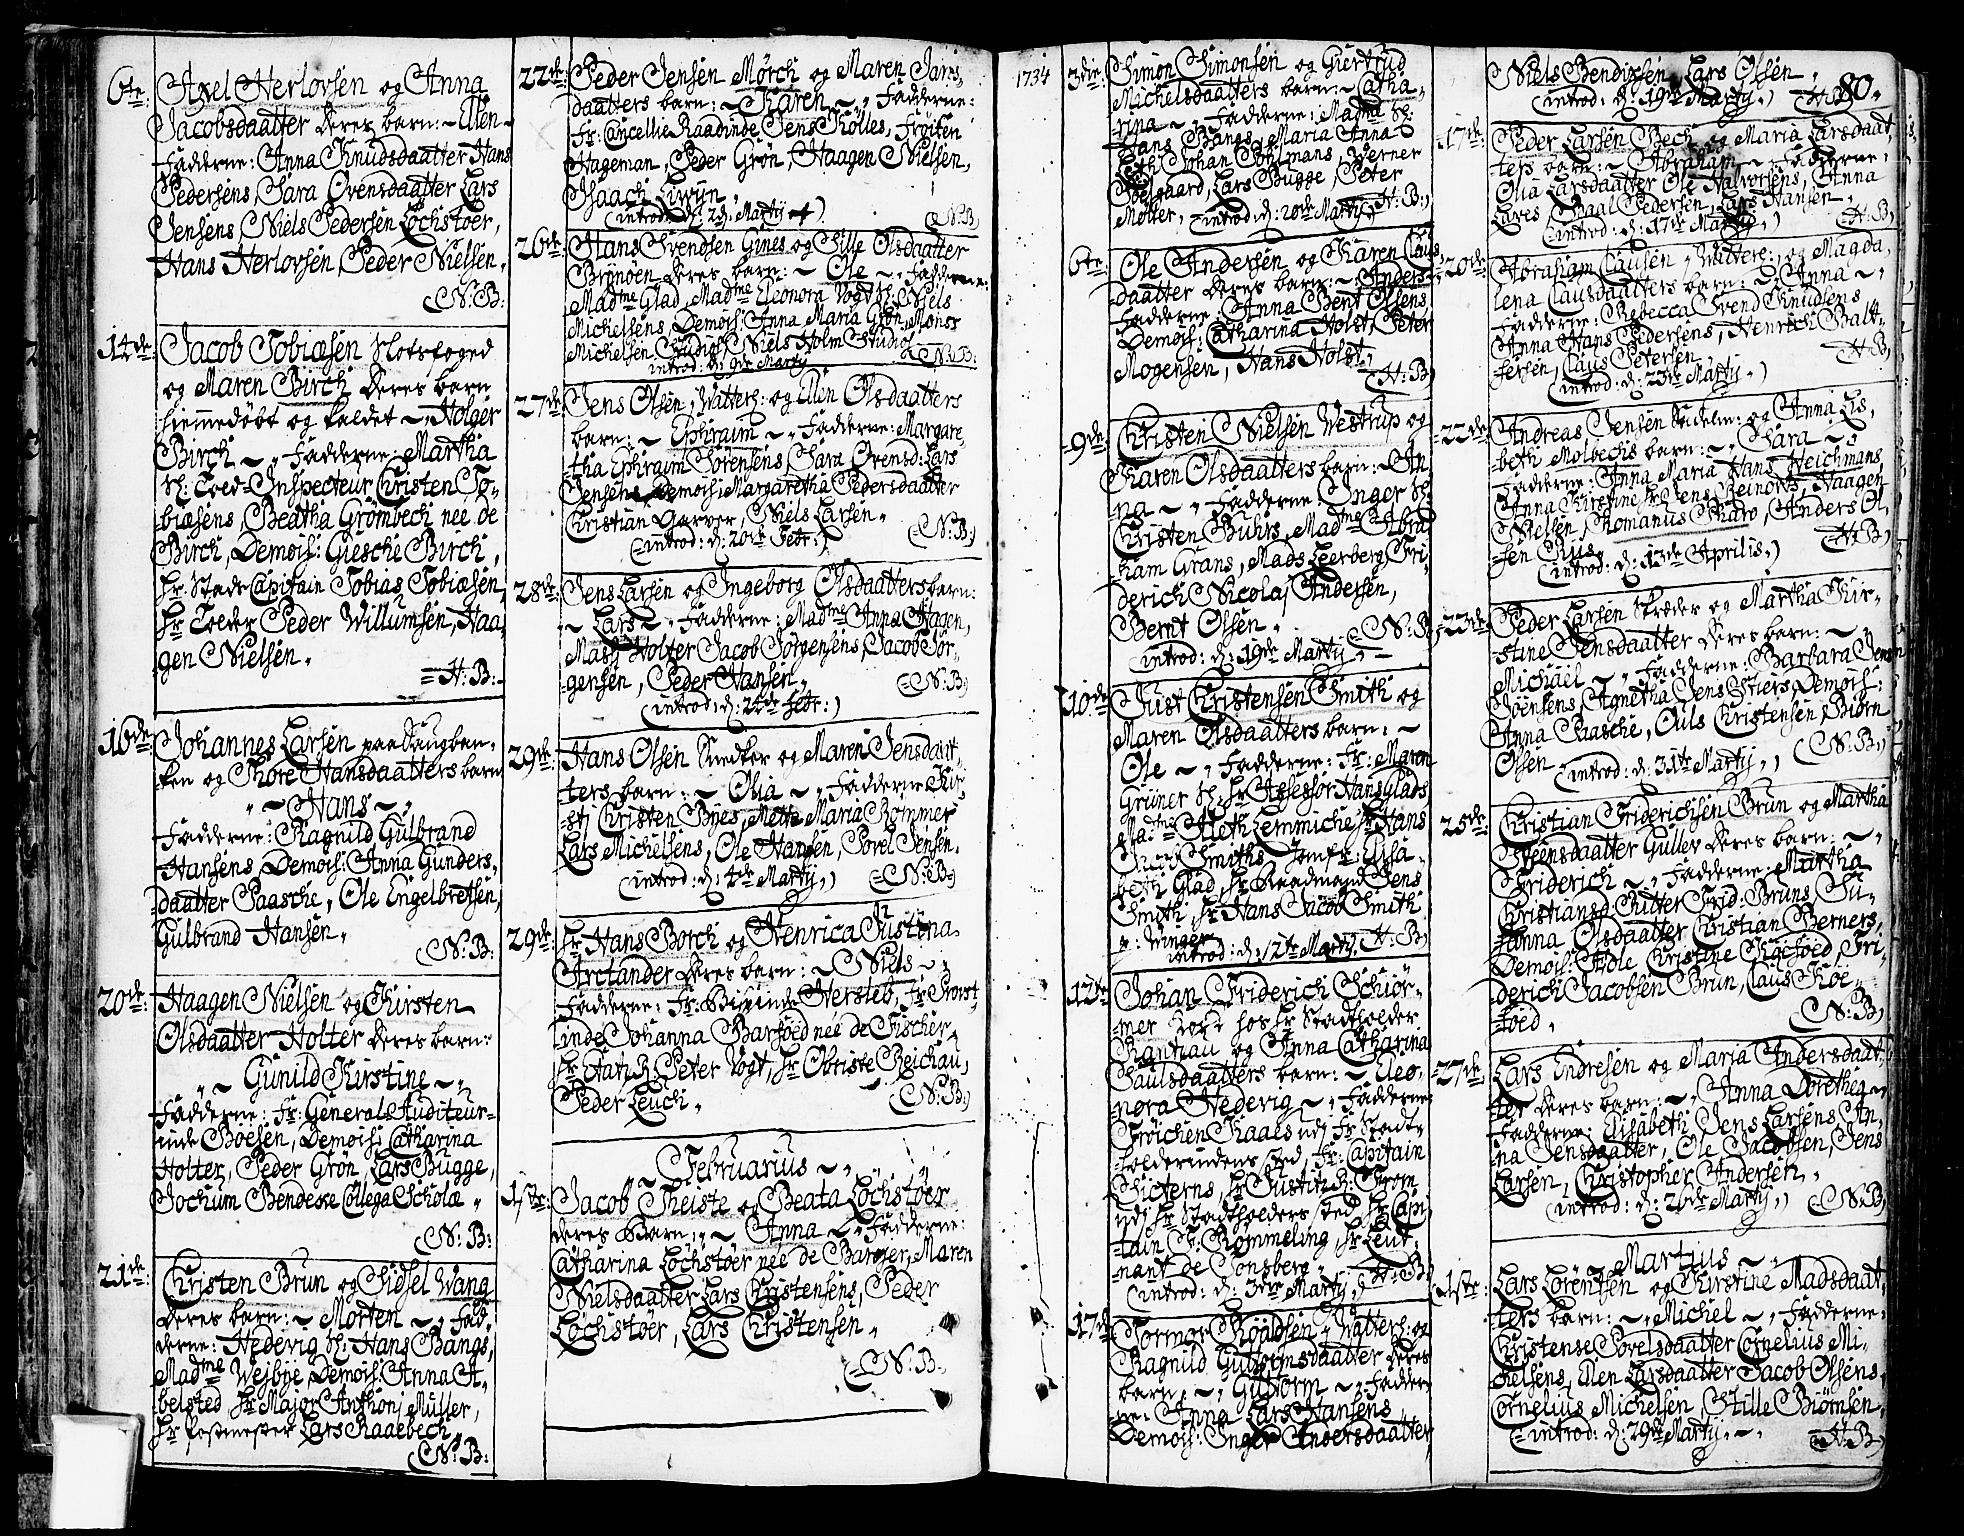 6te: Axel Herlovsen og Anna
Jacobsdaatter deres barn: ~ Ellen ~
Fadderne: Anna Knudsdaatter Hans
Pedersens, Sara Ovensdaatter Lars
Jensens, Niels Pedersen Lochstøer,
Hans Herlovsen, Peder Nielsen.
N:B:
14de: Jacob Tobiæsen Slotsfoged
og Maren Birch deres barn
hiemmedøbt og kaldet ~ Holger
Birch ~ Fadderne: Martha
Sl: Toed-Inspecteur Christen To-
biæsens, Beatha Grømbech neé de
Birch, Demois: Giesche Birch,
Hr Stads Capitain Tobias Tobiæsen,
Hr Tolder Peder Willumsen, Haa-
gen Nielsen.
H:B:
16de: Johannes Larsen paa Saugban-
ken og Thore Hansdaatters barn
~ Hans ~
Fadderne: Ragnild Gulbrand
Hansens, Demois: Anna Gunders-
daatter Paasche, Ole Engelbretsen,
Gulbrand Hansen.
N:B:
20de: Haagen Nielsen og Kirsten
Olsdaatter Holter deres barn:
~ Gunild Kirstine ~
Fadderne: Fr: General-Auditeur-
inde Boesen, Demois: Catharina
Holter, Peder Grøn, Lars Bugge,
Jochum Bendeske Collega Scholæ
N:B:
21de: Christen Brun og Sidsel Wang
deres barn: ~ Morten ~ Fad-
derne: Hedevig Sl: Hans Bangs,
Madme Wejbye, Demois: Anna A-
belsted, Hr Major Anthonj Müller,
Hr Postmester Lars Raaebech,
N:B:
22de: Peder Jensen Mørch og Maren Jans-
daatters barn: ~ Karen ~ Fadderne:
Fr: Cancellie Raadinde Jens Kølles, Frøiken
Hageman, Peder Grøn, Haagen Nielsen,
Isaach Liwyn,
(introd: d: 2d: Martij)
N:B)
26de: Hans Svendsen Gines og Sille Olsdaatter
Brønøen deres barn: ~ Ole ~ Fadderne:
Madme Glad, Madme Eleonora Vogt, Sl: Niels
Michelsens, Demois: Anna Maria Grøn, Monss
Michelsen Studios, Niels Holm Studios
introd: d: 9de Martij
N:B:
27de: Jens Olsen, Watters: og Ellen Olsdaatters
barn: ~ Ephraim ~ Fadderne: Margare-
tha Ephraim Sørensens, Sara Ovensd: Lars
Jensens, Demois: Margaretha Pedersdaatter
Christian Garver, Niels Larsen.
(introd: d: 20de Febr:)
N:B)
28de: Jens Larsen og Ingeborg Olsdaatters barn:
~ Lars ~ Fadderne: Madme Anna Hagen,
Masj Holter Jacob Jørgensens, Jacob Jør-
gensen, Peder Hansen.
(introd: d: 22de Febr:)
N:B)
29de: Hans Olsen Snedker og Maren Jensdaat-
ters barn: ~ Olia ~ Fadderne: Kir-
stj Christen Byes, Mette Maria Rommer
Lars Michelsens, Ole Hansen, Povel Jensen.
(introd: d: 4de Martij)
N:B)
29de: Hr Hans Borch og Henrica Justina
Arctander deres barn: ~ Niels ~
Fadderne: Fr: Bispinde Hersleb, Fr: Provst-
inde Johanna Barfoed neé de Fischer,
Hr Etatz R: Peter Vogt, Hr Obriste Reichau,
Peder Leuch.
N:B)
~ Februarius ~
1ste: Jacob Theiste og Beata Lochstøer
deres Barn: ~ Anna ~ Fadderne:
Catharina Lochstøer neé de Barger, Maren
Nielsdaatter Lars Christensens, Peder
Lochstøer, Lars Christensen.
N:B.
1734
3die: Simon Simonsen og Giertrud
Michelsdaatters barn: ~ Catha-
rina ~ Fadderne: Magna Sl:
Hans Bangs, Maria Anna
Johan Pohlmans, Werner
Soelgaard, Lars Bugge, Peter
Møller,
(introd: d: 20de Martij)
H:B)
6te: Ole Andersen og Karen Claus-
daatter deres barn: ~ Anders ~
Fadderne: Anna Bent Olsens
Demois: Catharina Holst, Peter
Mogensen, Hans Holst,
H:B)
9de: Christen Nielsen Westrup og
Karen Olsdaatters barn: ~ An-
na ~ Fadderne: Inger Sl:
Christen Buhrs, Madme Abra-
ham Grans, Mads Leerberg, Fri-
derich Nicolaj Andersen,
Bernt Olsen.
N:B)
(introd: d: 19de Martij)
10de: Just Christensen Smith og
Maren Olsdaatters barn: ~
Ole ~ Fadderne: Fr: Maren
Grüner Sl: Hr Assessor Hans Glads,
Madme Aleth Lemmiche Hr Hans
Jacob Smiths, Jomfr: Elisa-
beth Glad, Hr Raadmand Jens
Smith, Hr Hans Jacob Smith
p: Winger
introd: d: 12te Martij.
H:B)
12te: Johan Friderich Schiør-
mer Kokk hos Hr Stadtholder
Rantzau og Anna Catharina
Paulsdaatters barn: ~ Eleo-
nora Hedevig ~ Fadderne:
Frøichen Kaaes udj Fr: Stadt-
holderindens Sted, Fr: Capitain
Sicterns, Hr Justitz R: From
udj Hr Stadtholders Sted, Hr Capi-
tain C: Rømmeling, Hr Leut-
nant de Consberg.
H:B)
(introd: d: 3die Martij)
17de: Tormor Roaldsen, Watters: og
Ragnild Guttormsdaatter deres
barn: ~ Guttorm ~ Fadder-
ne: Anna Lars Hansens
Demois: Inger Andersdaatter
Niels Bendixsen, Lars Olsen,
(introd: d: 19de Martij)
H:B)
80.
17de: Peder Larsen Bech og Maria Larsdaat-
ters barn: ~ Abraham ~ Fadderne:
Olia Larsdaatter Ole Halvorsens, Anna
Lares, Paal Pedersen, Lars Hansen,
(introd: d: 17de Martij)
H:B)
20de: Abraham Clausen, Watters: og Magda-
lena Clausdaatters barn: ~ Anna ~
Fadderne: Rebecca Svend Knudsens
Anna Hans Pedersens, Henrich Balt-
zersen, Claus Petersen,
H:B)
(introd: d: 23de Martij)
22de: Andreas Jensen Sadelm: og Anna Lis-
beth Molbechs barn: ~ Kara ~
Fadderne: Anna Maria Hans Weichmans,
Anna Kirstine Hr Jens Beinovs, Haagen
Nielsen, Romanus Skaro, Anders Ol-
sen Eius,
H:B)
(introd: d: 13de Aprilis)
23de: Peder Larsen Skreder og Martha Kir-
stine Jensdaatter deres barn: ~
Michael ~ Fadderne: Barbara Jens
Joensens, Agnetha Jens Stiers, Demois:
Anna Paasche, Nils Christensen, Biørn
Olsen
N:B)
(introd: d: 31te Martij)
25de: Christian Friderichsen Brun og Martha
Steensdaatter Gullev deres barn: ~
Friderich ~ Fadderne: Martha
Christiansd: Rutter Frid: Bruns, Su-
sanna Olsdaatter Christian Berners,
Demois: Adle Christine Kigefoed, Fri-
derich Jacobsen Brun, Claus Koe-
foed.
N:B)
27de: Lars Endresen og Maria Andersdaat-
ter deres barn: ~ Anna Dorethea ~
Fadderne: Elisabeth Jens Larsens, An-
na Jensdaatter, Ole Jacobsen, Jens
Larsen, Christopher Andersen,
(introd: d: 26de Martij)
N:B)
~ Martius ~
1ste: Lars Lorentsen og Kirstine Madsdaat-
ters barn: ~ Michel ~ Fadderne:
Christense Povelsdaatter Cornelius Mi-
chelsens, Ellen Larsdaatter Jacob Olsens,
Cornelius Michelsen, Stille Biørnsen,
(introd: d: 29de Martij)
H:B)